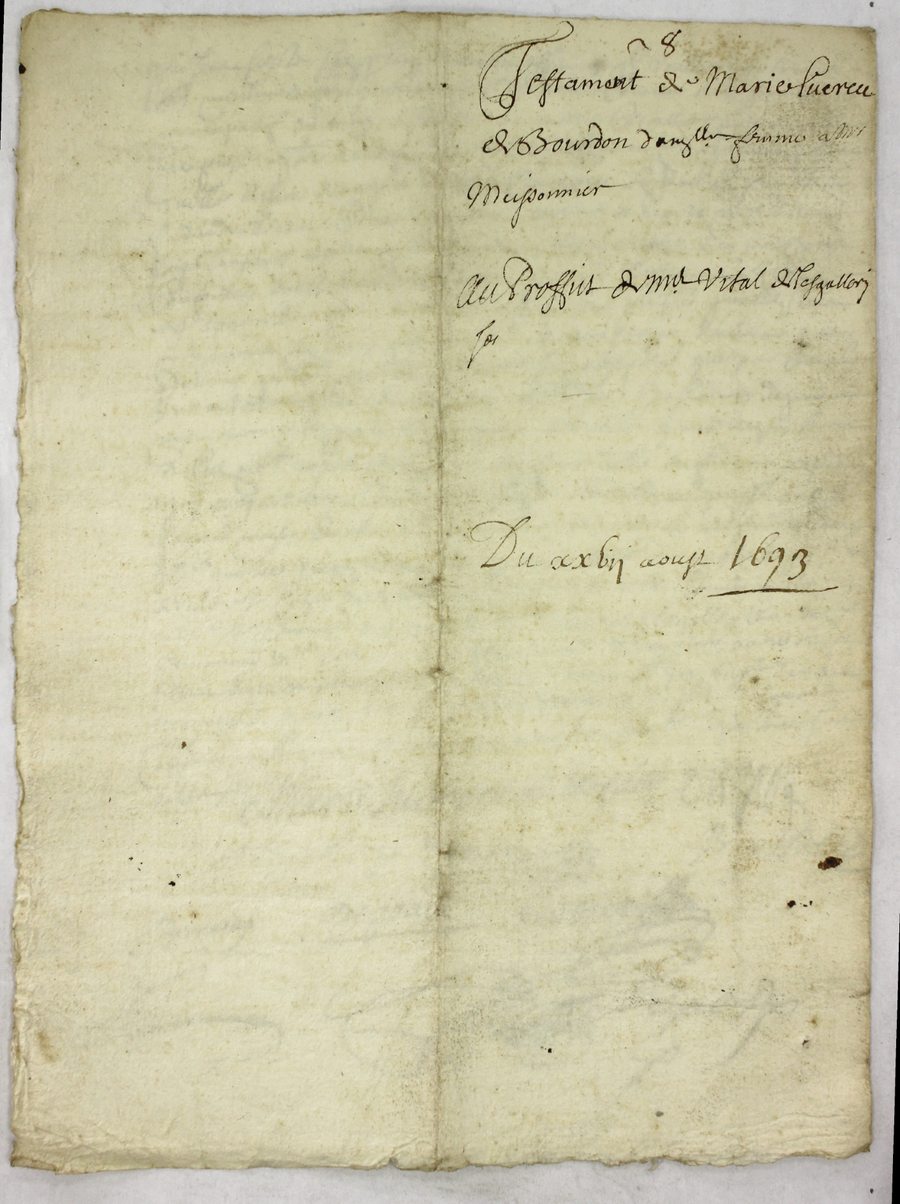 8
Testament de Marie
de Bourdon dauzlle femme a Mr
Meissonnier
Au Proffit de Mr Vital
Du xxvij aoust 1693